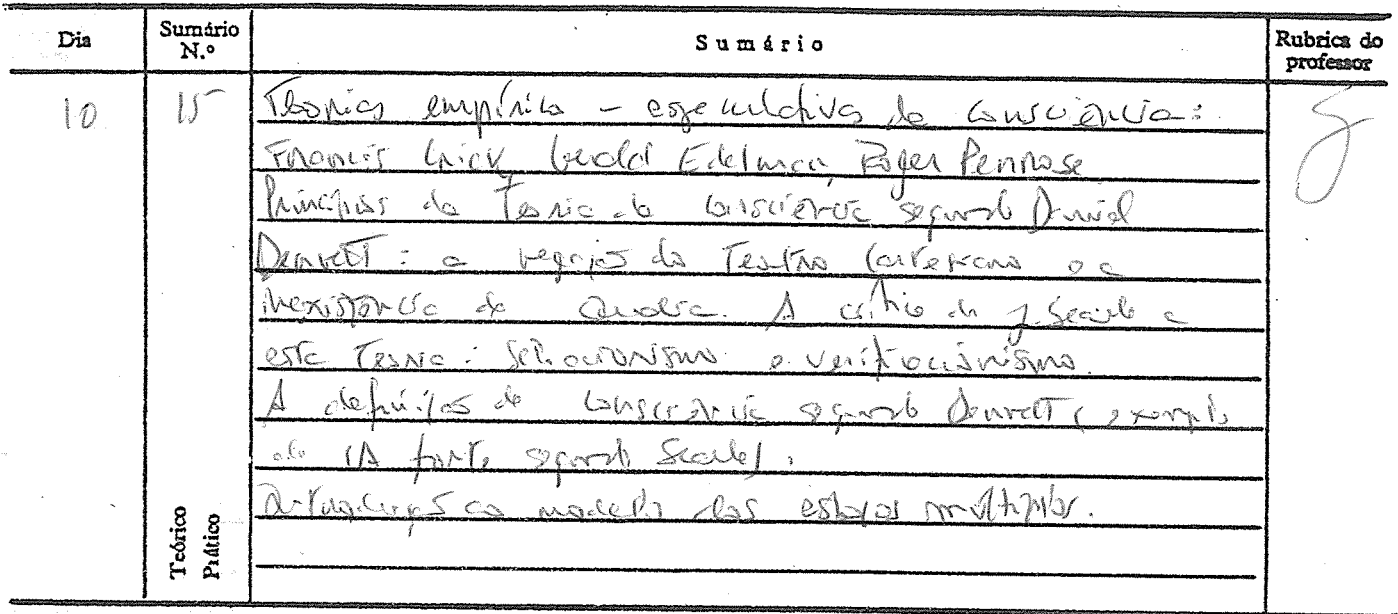 Dia Sumário N.º Sumário Rubrica do professor
10 15 Teorias empírico-especulativas da consciência:
Francis Crick, Gerald Edelman, Roger Penrose
Princípios da Teoria da consciência segundo Daniel
Dennett: a negação do Teatro Cartesiano e a
inexistência de Qualia. A crítica de J. Searle a
esta Teoria: e verificacionismo.
A definição de consciência segundo Dennett (exemplo
da IA forte segundo Searle).
Introdução ao modelo dos esboços múltiplos.
Teórico
Prático